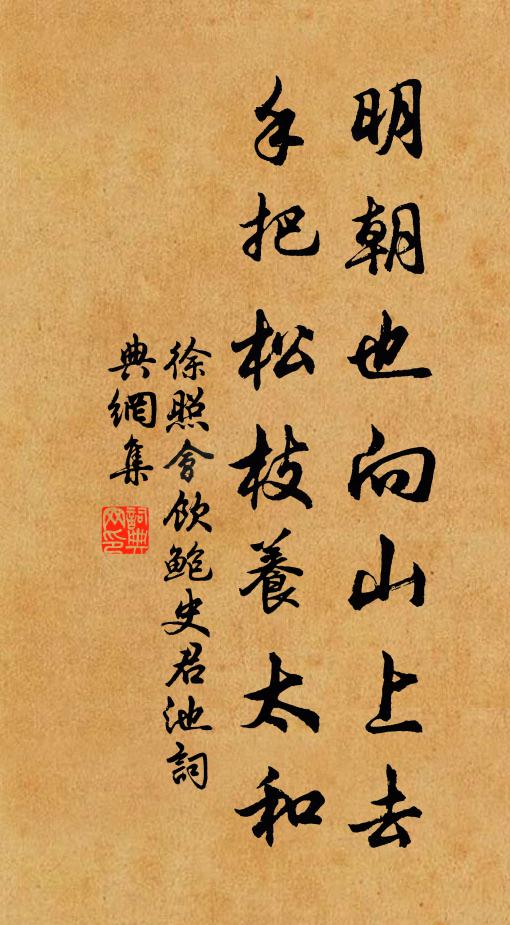 明朝也向山上去
手把松枝養太和
徐照會飲鮑史君池詞
典網集
詞典網印